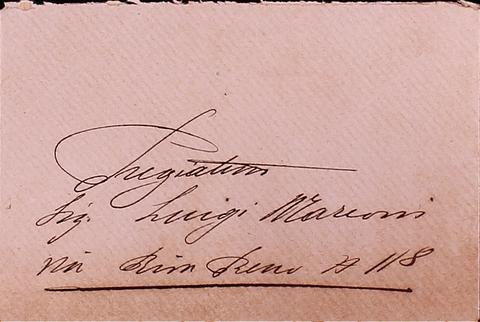 Pregiatimo
Sig. Luigi Marconi
Via Riva Reno N 118